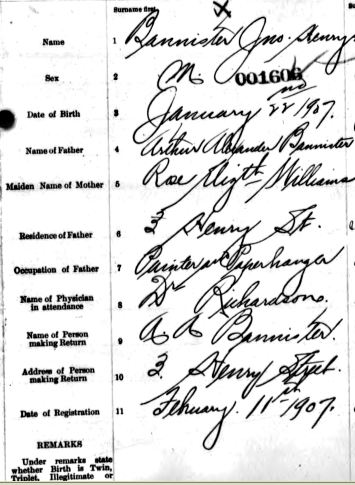 Surname first
Name 1 Bannister Jno. Henry
Sex 2 M. 001606
Date of Birth 3 January 22nd 1907.
Name of Father 4 Arthur Alexander Bannister
Maiden Name of Mother 5 Rose Elizth Williams
Residence of Father 6 3 Henry St.
Occupation of Father 7 Painter and Paperhanger
Name of Physician
in attendance 8 Dr Richardson.
Name of Person
making Return 9 A A Bannister.
Address of Person
making Return 10 3. Henry Street.
Date of Registration 11 February. 11st 1907.
REMARKS
Under remarks state
whether Birth is Twin,
Triplet, Illegitimate or